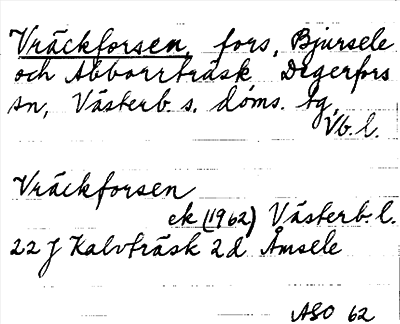 Vräckforsen, fors, Bjursele
och Abborrträsk Degerfors
sn, Västerb. s. doms. tg,
Vb. l.
Vräckforsen
ek (1962) Västerb. l.
22 J Kalvträsk 2 d Åmsele
ASO 62